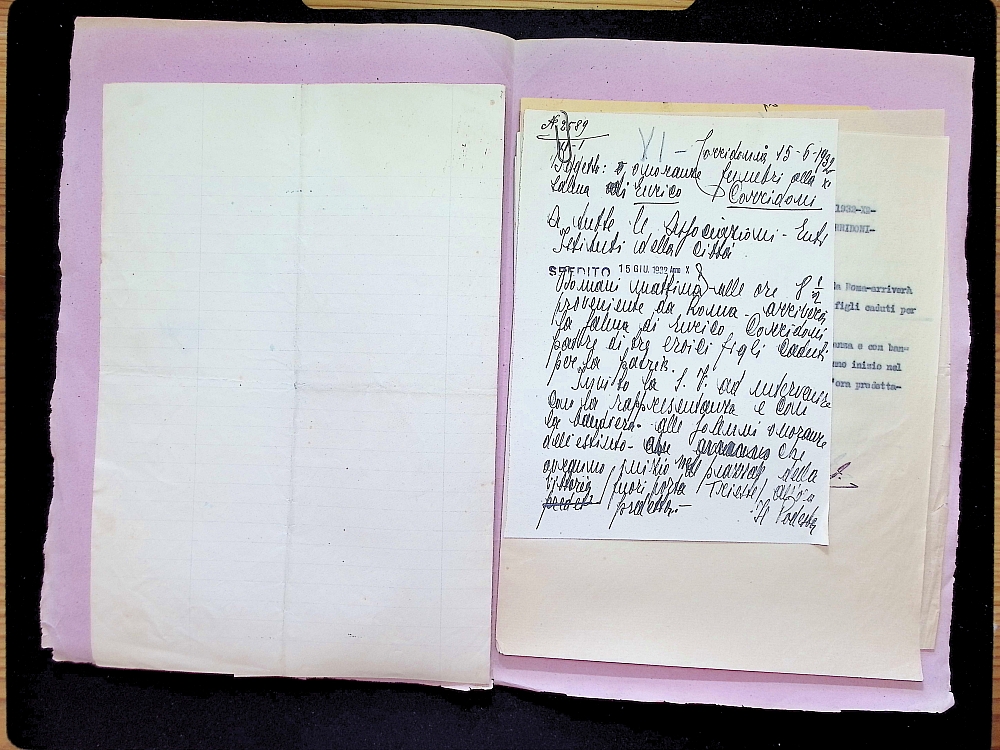 N. 2589
XI - Corridonia 15-6-1932 X
Oggetto: onoranze funebri alla
Salma di Enrico Corridoni
A tutte le Associazioni - Enti
Istituti della Città
SPEDITO 15 GIU. 1932 Anno X
Domani mattina alle ore 8 1/2
proveniente da Roma arriverà
la Salma di Enrico Corridoni
padre di tre eroici figli caduti
per la patria.
Invito la S. V. ad intervenire
con la rappresentanza e con
la bandiera alle solenni onoranze
dell'estinto - che
avranno inizio nel piazzale della
Vittoria (fuori porta Trieste) all'ora
predetta.-
Il Podestà
1932-XX-
RRIDONI-
da Roma-arriverà
figli caduti per
anza e con ban=
nno inizio nel
'ora predetta-